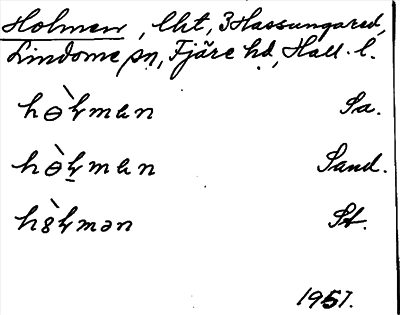 Holmen, lht, 3 Hassungared,
Lindome sn, Fjäre hd, Hall. l.
hɵ̀ɫman Sa.
hɵ̀ɫman Sand.
h8̀ɫmən St.
1957.